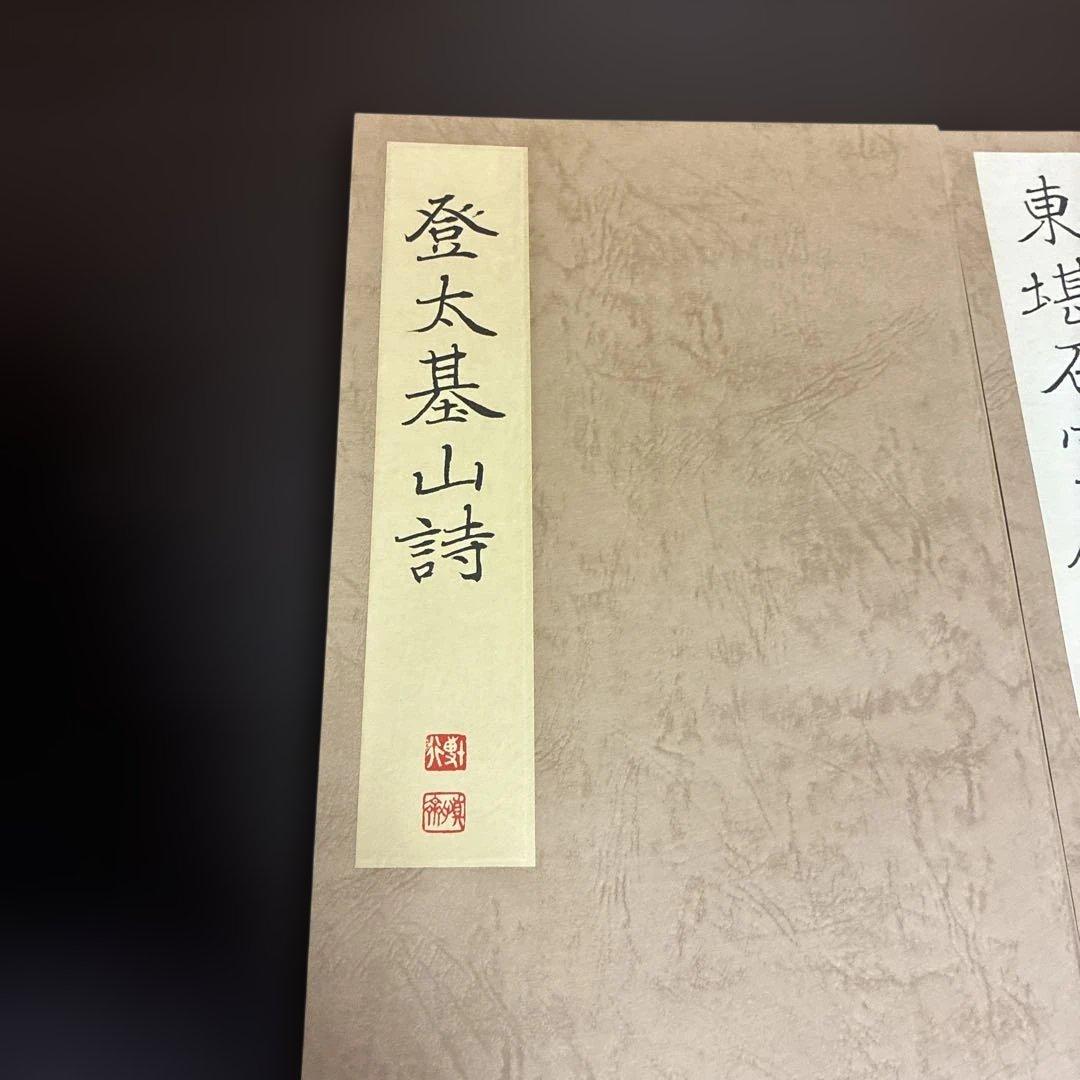 登太基山詩
東堪石室